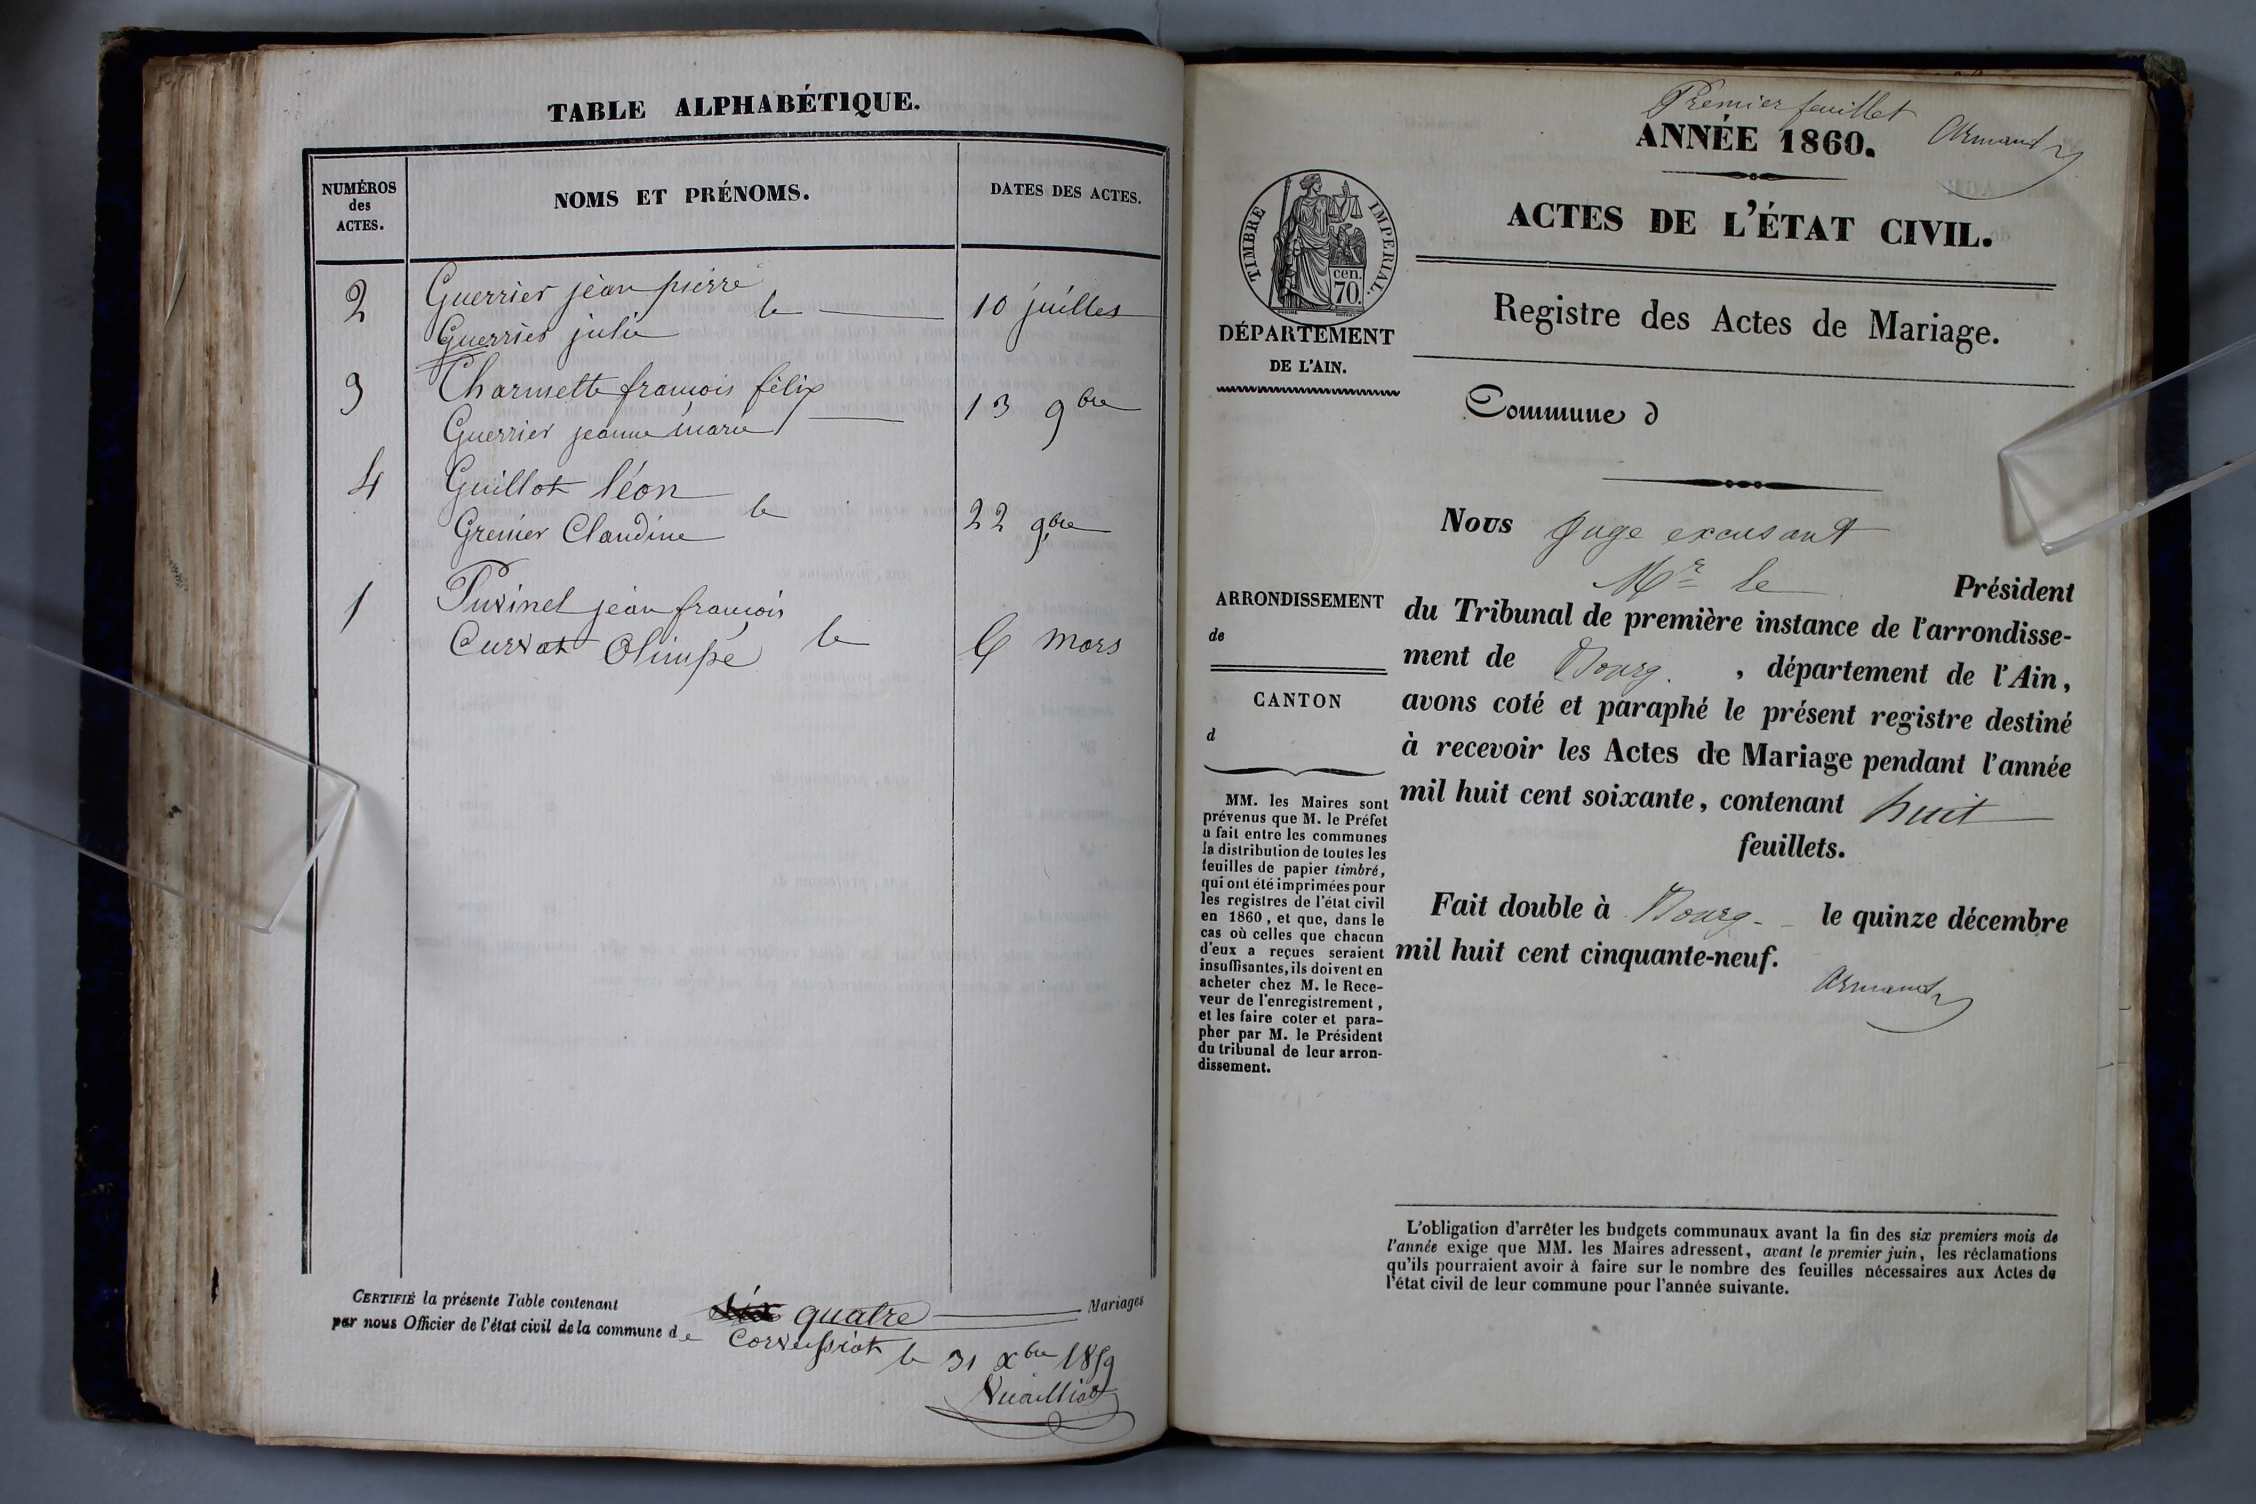 TABLE ALPHABÉTIQUE.
NUMÉROS
des
ACTES.
NOMS ET PRÉNOMS.
DATES DES ACTES.
2 Guerrier jean pierre
Guerrier julie le 10 juillet
3 Charmette francois félix
Guerrier jeanne marie 13 9bre
4 Guillot léon
Grenier Claudine le 22 9bre
1 Puvinel jean francois
Curvat Olimpe le 6 mars
CERTIFIÉ la présente Table contenant quatre Mariages
par nous Officier de l'état civil de la commune de Corveissiat le 31 Xbre 1859
Premier feuillet
Armand
ANNÉE 1860.
ACTES DE L'ÉTAT CIVIL.
TIMBRE IMPERIAL.
cen.
70.
DÉPARTEMENT
DE L'AIN.
Registre des Actes de Mariage.
Commune d
ARRONDISSEMENT
de
CANTON
d
MM. les Maires sont
prévenus que M. le Préfet
a fait entre les communes
la distribution de toutes les
feuilles de papier timbré,
qui ont été imprimées pour
les registres de l'état civil
en 1860, et que, dans le
cas où celles que chacun
d'eux a reçues seraient
insuffisantes, ils doivent en
acheter chez M. le Rece-
veur de l'enregistrement,
et les faire coter et para-
pher par M. le Président
du tribunal de leur arron-
dissement.
Nous Juge excusant
Mr le Président
du Tribunal de première instance de l'arrondisse-
ment de Bourg. , département de l'Ain,
avons coté et paraphé le présent registre destiné
à recevoir les Actes de Mariage pendant l'année
mil huit cent soixante, contenant huit
feuillets.
Fait double à Bourg - le quinze décembre
mil huit cent cinquante-neuf.
Armand
L'obligation d'arrêter les budgets communaux avant la fin des six premiers mois de
l'année exige que MM. les Maires adressent, avant le premier juin, les réclamations
qu'ils pourraient avoir à faire sur le nombre des feuilles nécessaires aux Actes de
l'état civil de leur commune pour l'année suivante.